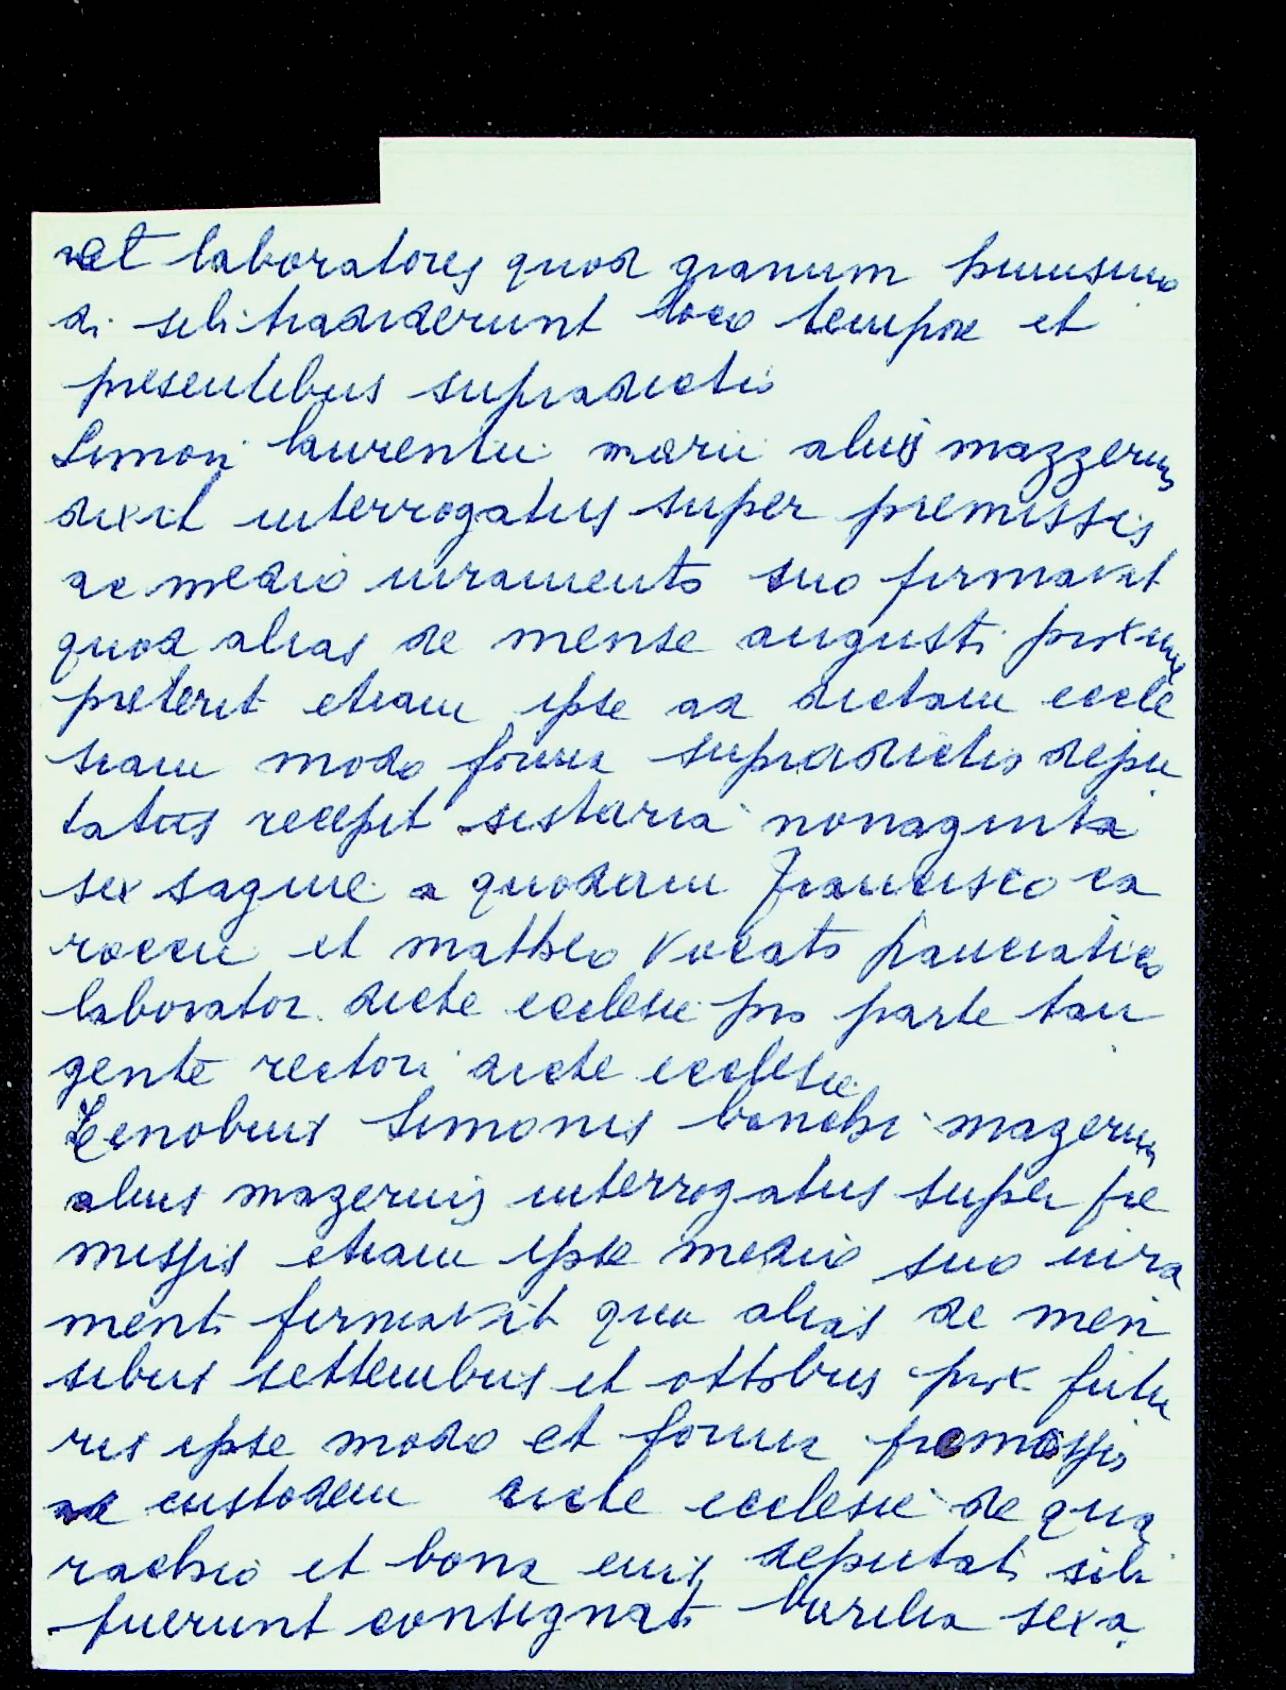 et laboratores quod granum huiusmo
di sibi tradiderunt loco tempore et
presentibus supradictis
Simon laurentii marii alius mazzerius
dixit interrogatus super premissis
ac medio iuramento suo firmavit
quod alias de mense augusti proxime
preterit etiam ipse ad dictam eccle
siam modo forma supradictis depu
tatus recepit sistaria nonaginta
sex sagine a quodam Francisco ca
roccii et matheo vocato pancratico
laborator. dicte ecclesie pro parte tan
gente rectori dicte ecclesie
Zenobius Simonis banchi mazerius
alius mazerius interrogatus super pre
missis etiam ipse medio suo iura
menti firmavit quo alias de men
sibus settembris et ottobris prox. futu
ris ipse modo et forma premissis
ac custodem dicte ecclesie de qua
rachio et bona eius deputati sibi
fuerunt consignati barilia sexa